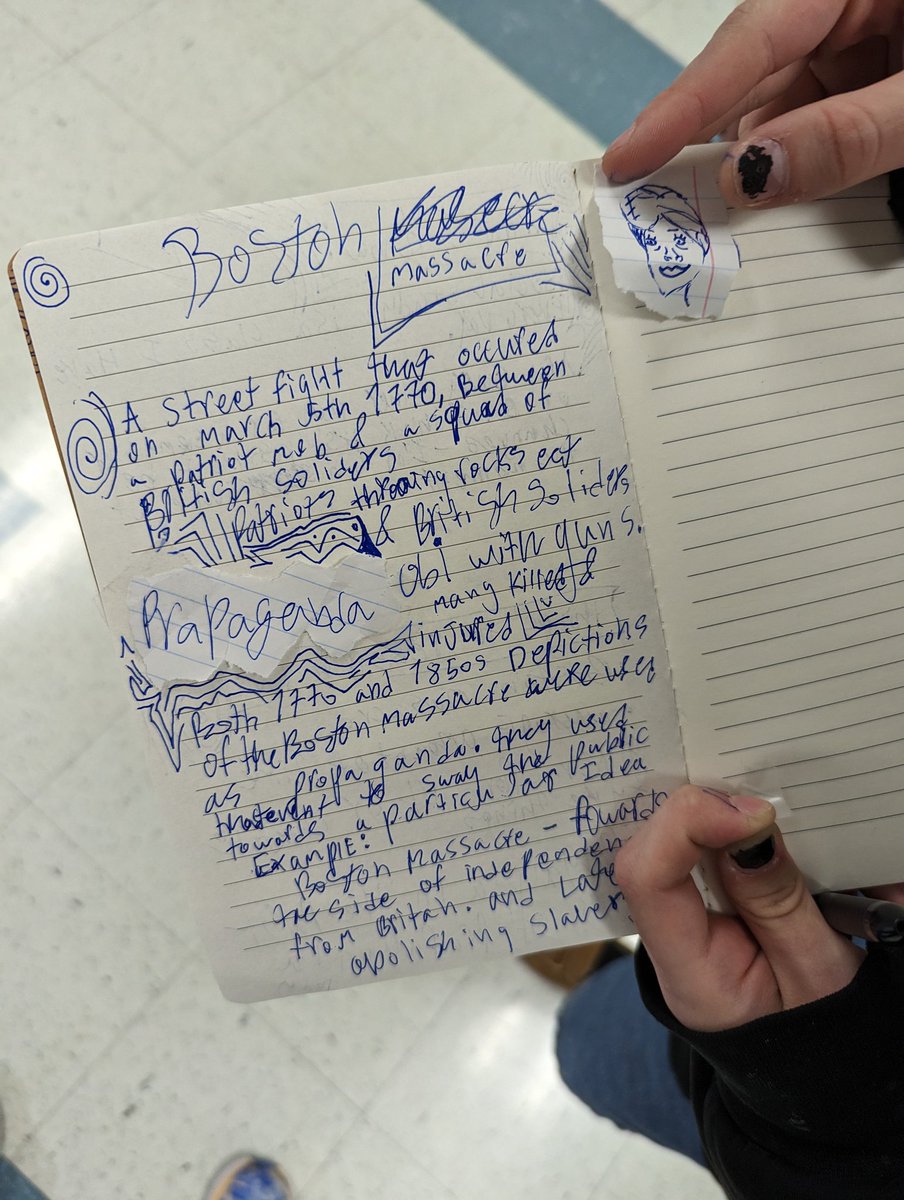 Boston
massacre
A street fight that occured
on march 5th 1770, Between
a patriot mob & a squad of
British soliders
Patriots throwing rocks
& British soliders
with guns.
Prapaganda
many killed &
injured
Both 1770 and 1850s Depictions
of the Boston Massacre were used
as propaganda. they used
to sway the Public
towards a particular Idea
Example:
Boston Massacre - Towards
the side of independen
from Britah. and Late
apolishing slaver